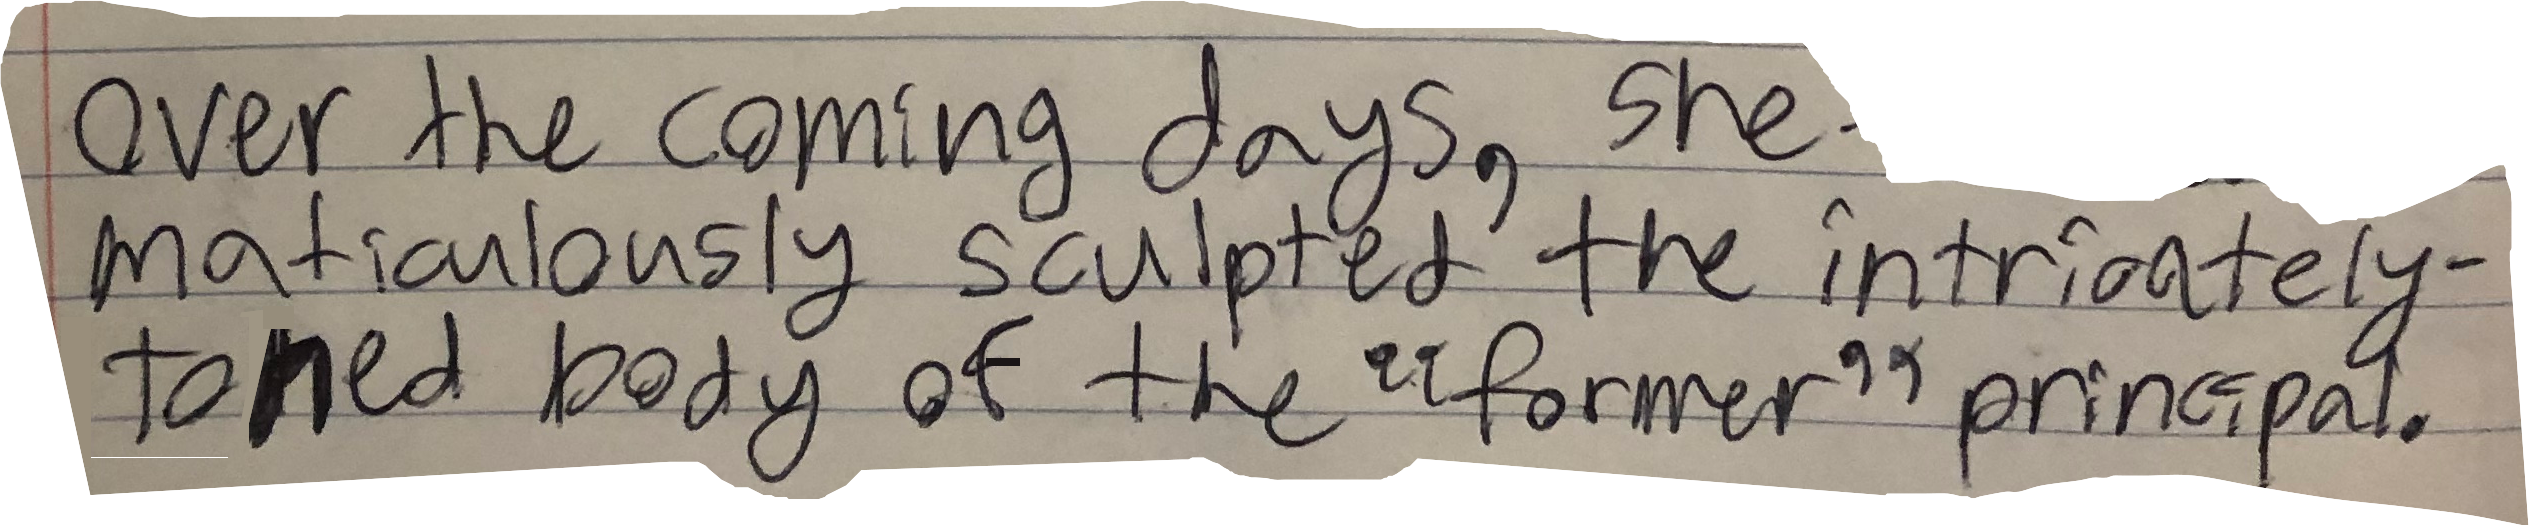 Over the coming days, she
maticulously sculpted the intricately-
toned body of the "former" principal.